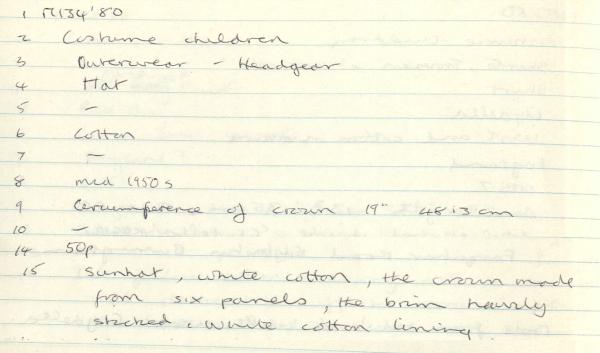 1 M134'80
2 Costume children
3 Outerwear - Headgear
4 Hat
5 -
6 Cotton
7 -
8 mid 1950s
9 Circumference of crown 19" 48.3 cm
10 -
14 50p
15 Sunhat, white cotton, the crown made
from six panels, the brim heavily
stitched. White cotton lining.